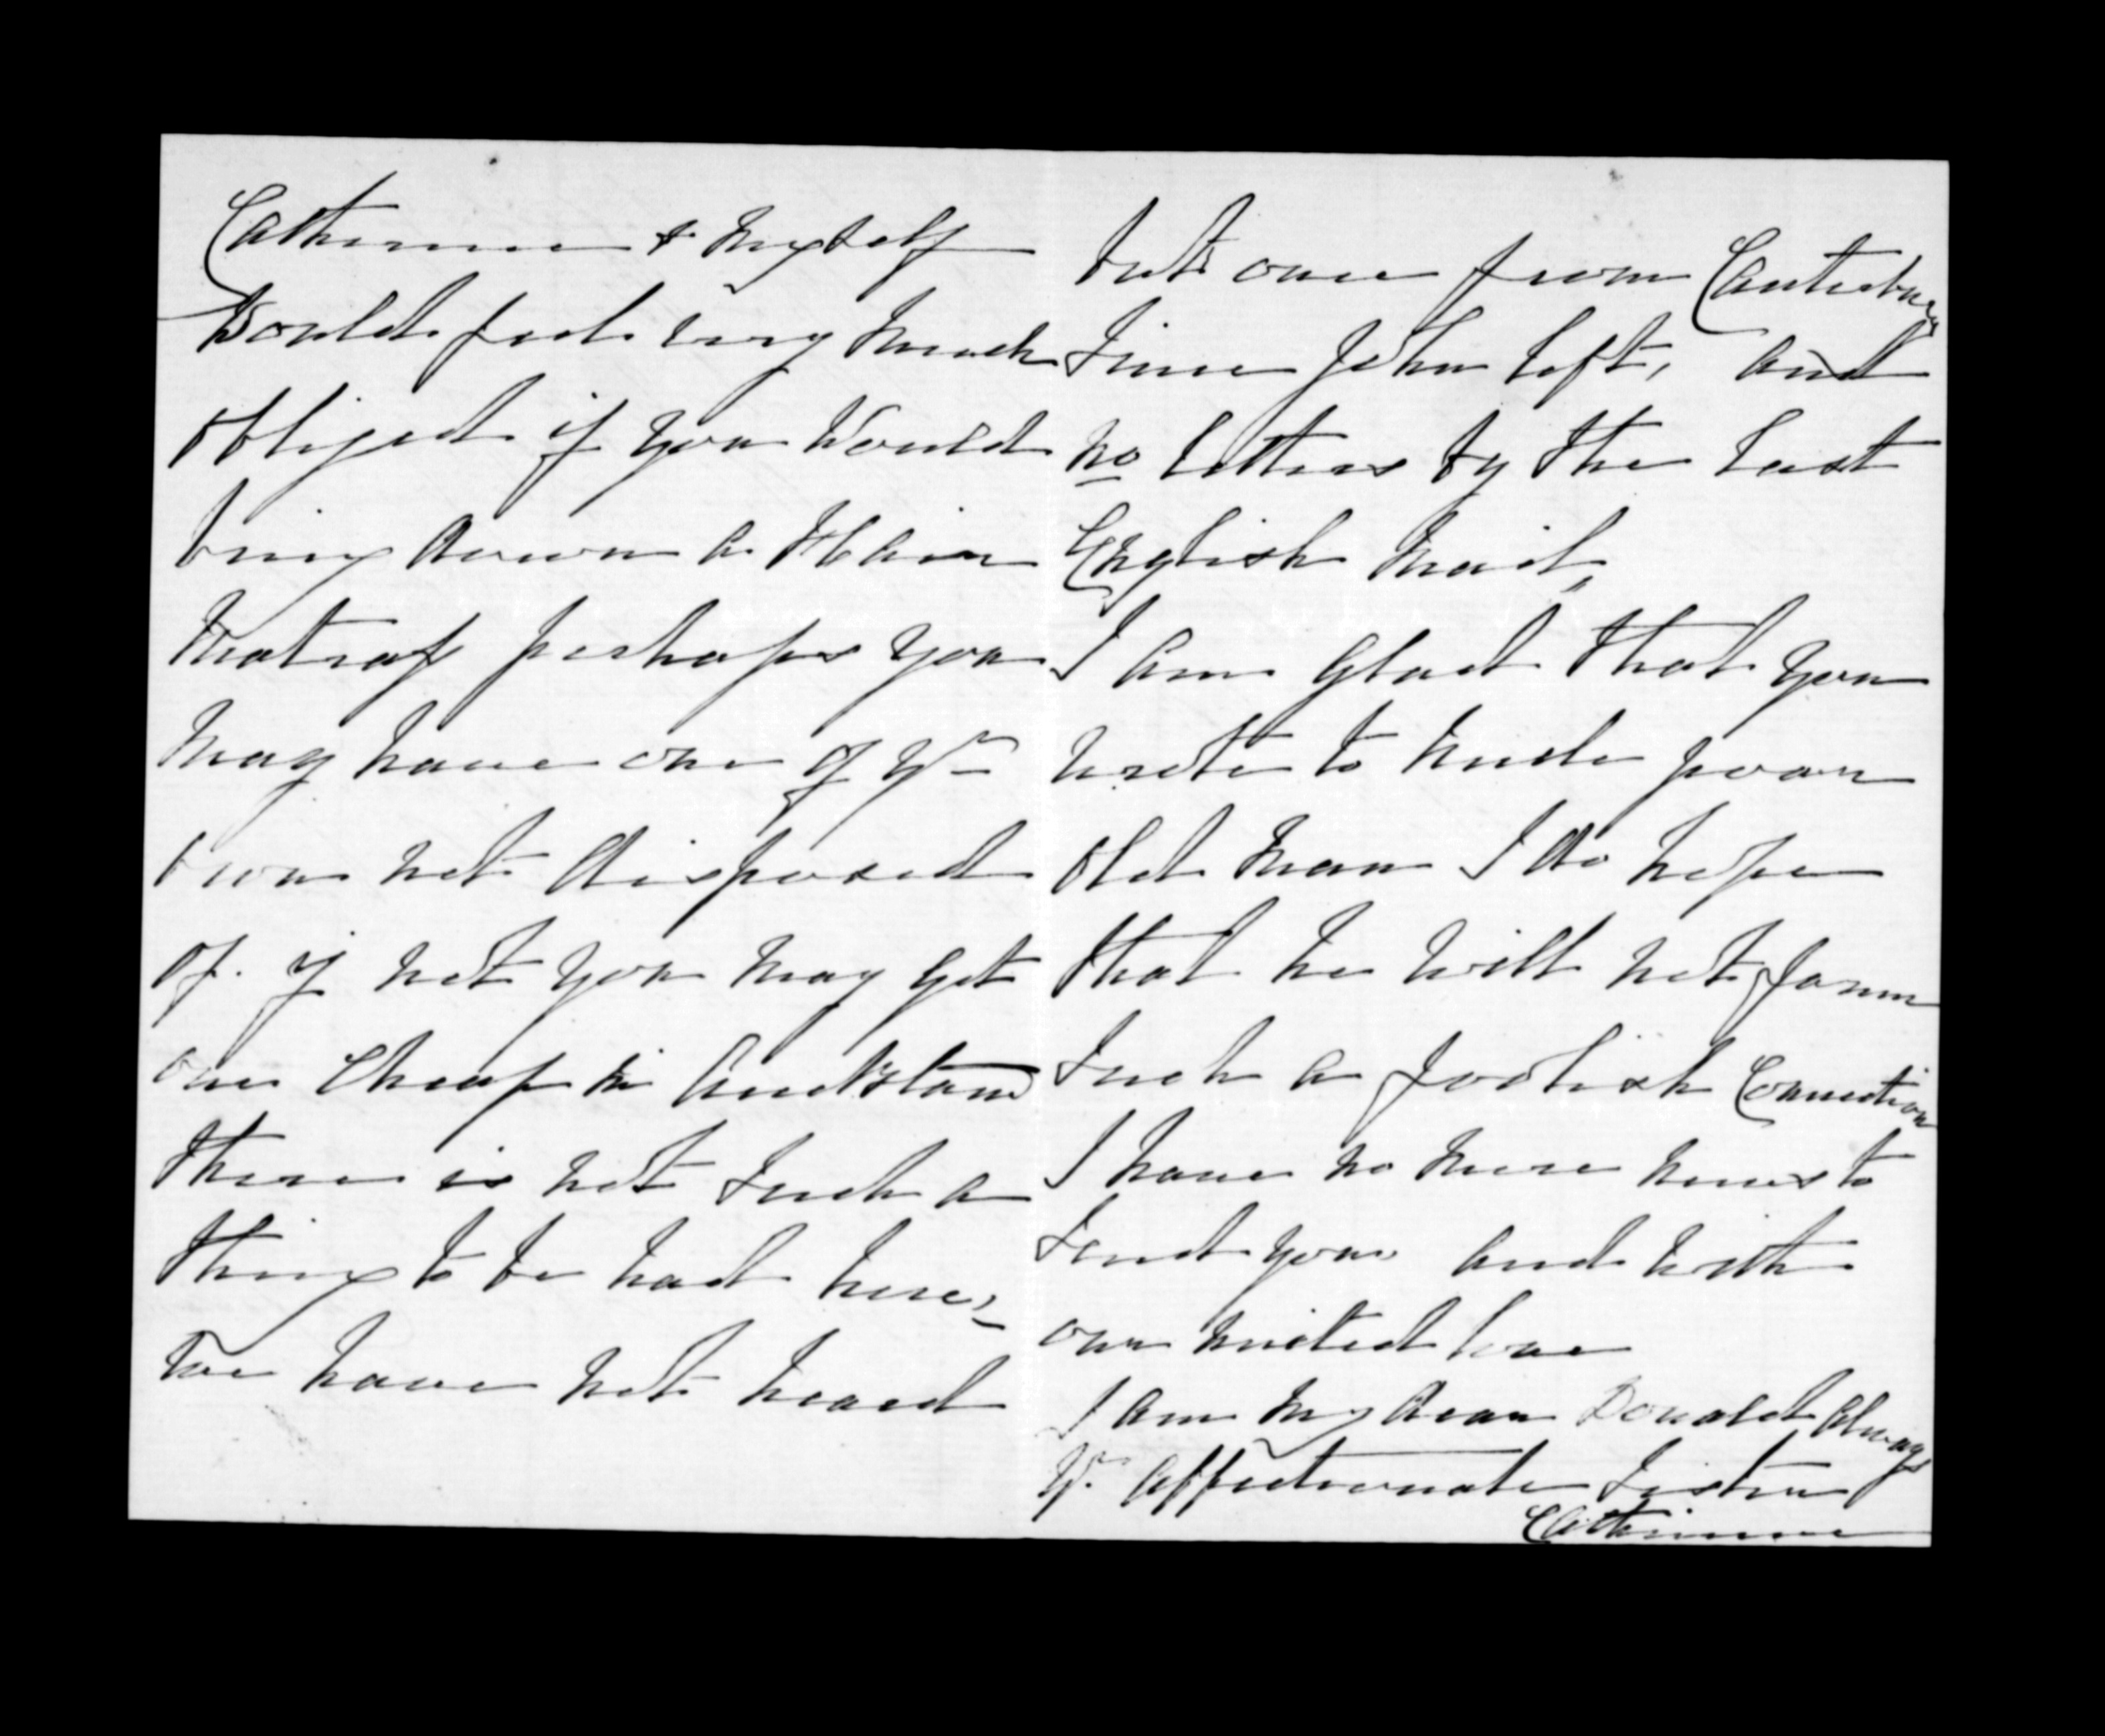 Catherine & myself
Would feel very much
obliged if you would
bring down a Hair
Matrass perhaps you
may have one of yr
own not disposed
of. If not you may get
one Cheap in Auckland
there is not such a
thing to be had here,
We have not heard
but once from Canterbury
since John left, and
no letters by the last
English Mail,
I am glad that you
wrote to Uncle poor
old man I do hope
that he will not form
such a foolish Connection
I have no more news to
send you and with
our united love
I am my dear Donald always
Yr. affectionate Sister
Catherine